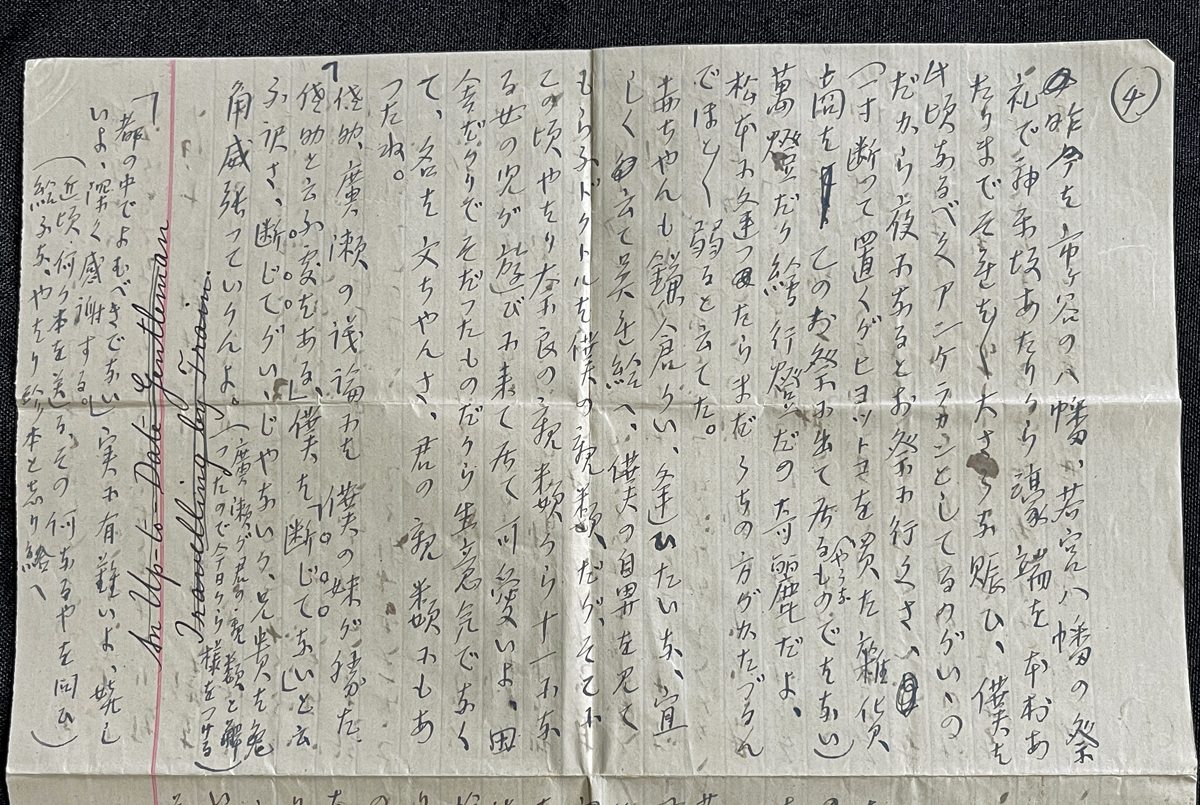 ④
昨今は市ヶ谷の八幡、若宮八幡の祭
礼で神楽坂あたりから濠端は本村あ
たりまでそれは〱大さうな賑ひ、僕は
頃なるべくアンケラカンとしてるのがいゝの
だから夜になるとお祭に行くさ、
(一寸断って置くがヒョットコを買た雑貨
商は このお祭に出て居るやうなものでない)
萬燈だの絵行燈だの奇麗だよ、
松本に逢つたらまだうちの方がかたづかん
でほと〱弱ると云てた。
ちやんも鎌倉かい、逢ひたいな、宜
しく云て呉れ給へ、僕の を見て
もらふドクトルは僕の親類だが、そこに
この頃やはり奈良の親類から十一にな
る女の児が遊びに来て居て可愛いよ、田
舎 でそだつたものだから生意気でなく
て、名は文ちやんさ、君の親類にもあ
つたね。
「 助、廣瀬の議論は、僕の妹が勝た
助と云ふ はある、」僕は「断じてない」と云
ふ訳さ、断じてがいゝじやないか、兄貴は兎
角威張っていかんよ。(廣瀬が君の親類と解
つたので今日から様をつける)
Travelling by Train.
An Up-to-Date Gentleman
「都の中でよむべきでない」実に有難いよ、
いよ、深く感謝する。
(近頃何か本を送る、その何なるやを問ひ
給ふな、やはり絵本と思ひ給へ)